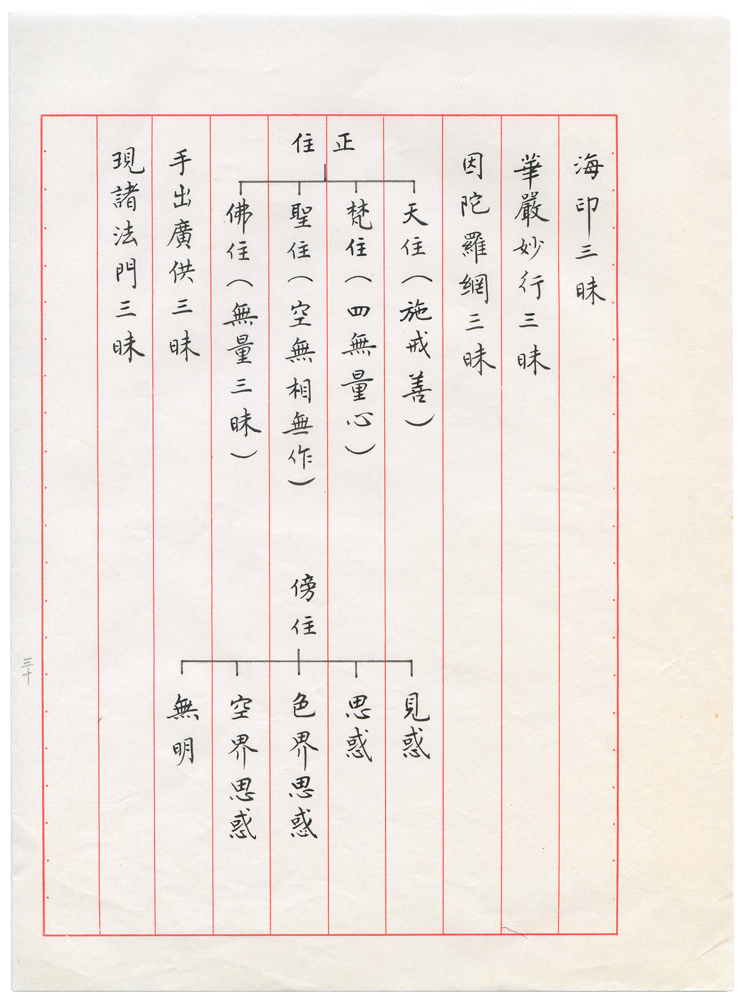 海印三昧
華嚴妙行三昧
因陀羅網三昧
正住
天住（施戒善）
梵住（四無量心）
聖住（空無相無作）
佛住（無量三昧）
傍住
見惑
思惑
色界思惑
空界思惑
無明
手出廣供三昧
現諸法門三昧
三十